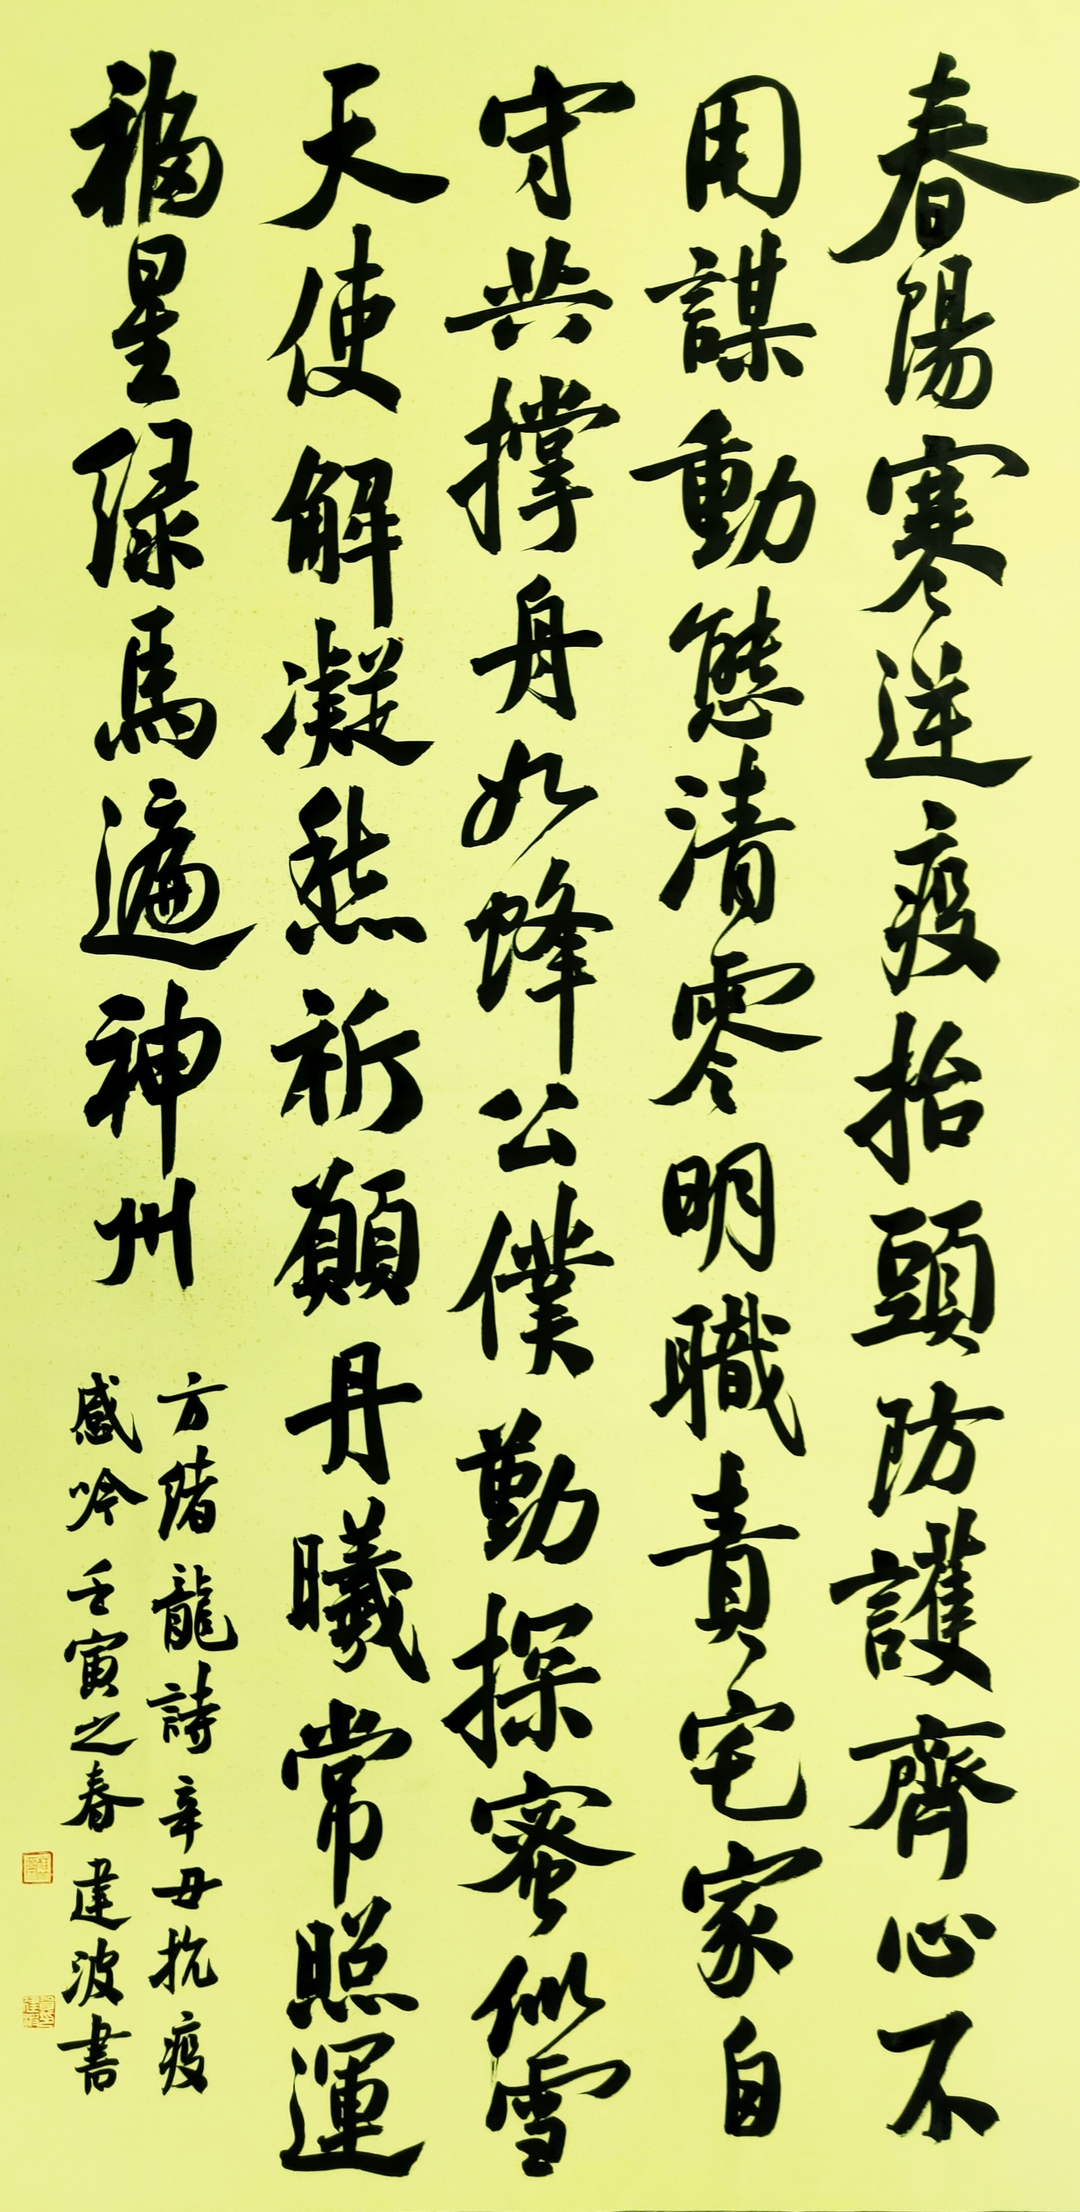 春陽寒送疫抬頭防護齊心不
用謀動態清零明職責宅家自
守共撑舟如蜂公僕勤探蜜似雪
天使解凝愁祈願丹曦常照運
福星绿馬遍神州
方绪龍詩辛丑抗疫
感吟壬寅之春建波書